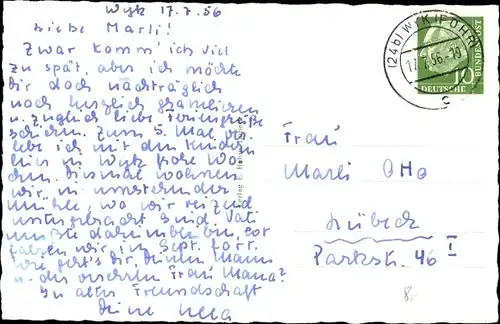 Wyk 17.7.56
Liebe Marli!
Zwar komm' ich viel
zu spät, aber ich möchte
Dir doch nachträglich
noch herzlich gratulieren
u. zugleich liebe Feriengrüße
schicken. Zum 5. Mal ver-
lebe ich mit den Kindern
hier in Wyk frohe Wo-
chen. Diesmal wohnen
wir in
Mühle, wo wir reizend
untergebracht sind. Vati
mußte
fahren wir im Sept. fort.
Wie geht's Dir, Deinem Mann
u. der verehrten Frau Mama?
In alter Freundschaft
Deine
(24b) WYK (FÖHR)
17.7.56.-19
c
10
DEUTSCHE BUNDESPOST
Frau
Marli Otto
Lübeck
Parkstr. 46 I